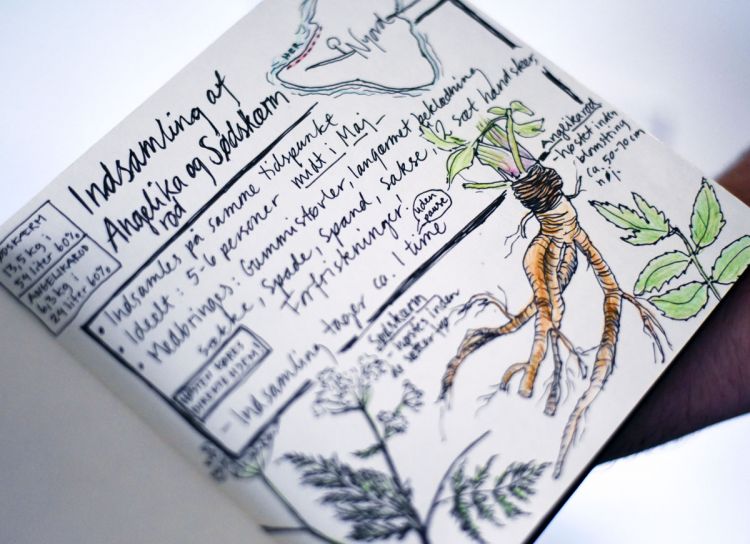 HER
Nyord
Indsamling af
Angelika og Sødskærm
rod
SØDSKÆRM
13,5 kg i
54 liter 60%
ANGELIKAROD
6,3 kg i
24 liter 60%
• Indsamles på samme tidspunkt
midt i Maj
• Ideelt: 5-6 personer
• Medbringes: Gummistøvler, langærmet beklædning,
sække, spade, spand, sakse, 12 sæt handsker,
Forfriskninger!
uden
pause
- Indsamling tager ca. 1 time
HØSTEN KØRES
DIREKTE HJEM!
Angelikarod
- høstet inden
blomstring
ca. 50-70 cm
høj.
Sødskærm
- høstes inden